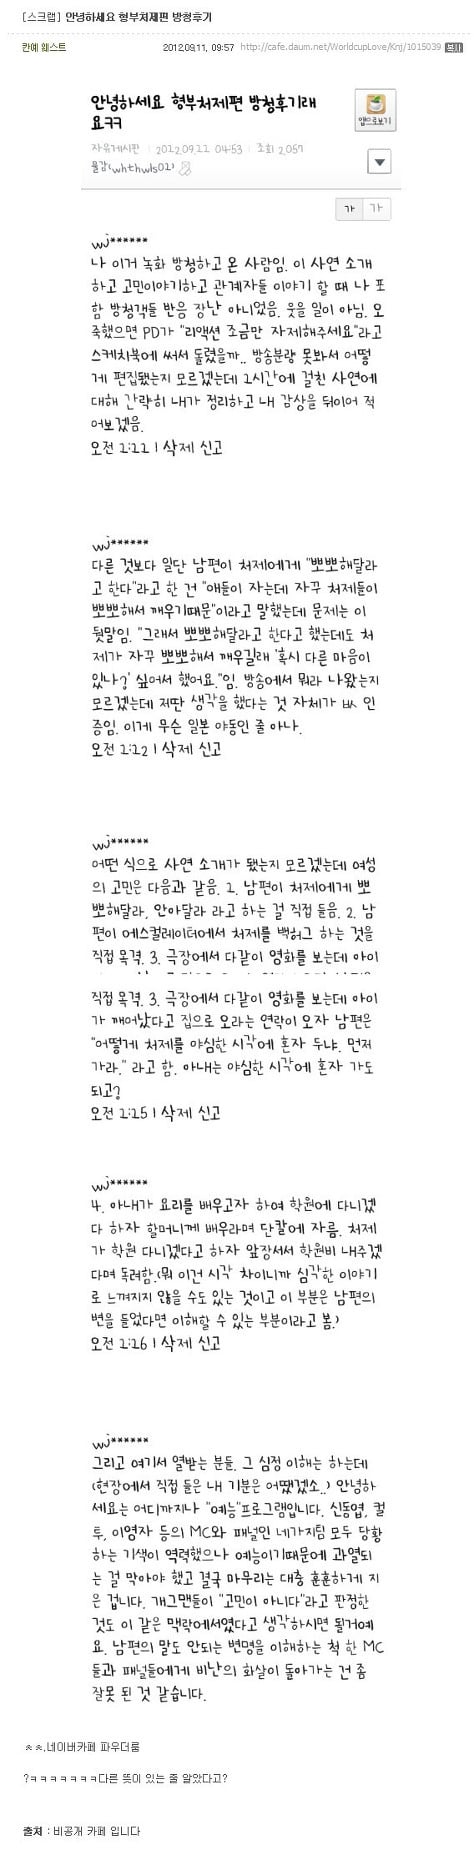 [스크랩] 안녕하세요 형부처제편 방청후기
칸예 웨스트
2012.09.11. 09:57 http://cafe.daum.net/WorldcupLove/Knj/1015039 복사
안녕하세요 형부처제편 방청후기래
요ㅋㅋ
앱으로보기
자유게시판 | 2012.09.11 04:53 | 조회 2,057
물감(whthwls01)
가 가
wj******
나 이거 녹화 방청하고 온 사람임. 이 사연 소개
하고 고민이야기하고 관계자들 이야기 할 때 나 포
함 방청객들 반응 장난 아니었음. 웃을 일이 아님. 오
죽했으면 PD가 "리액션 조금만 자제해주세요"라고
스케치북에 써서 돌렸을까.. 방송분량 못봐서 어떻
게 편집됐는지 모르겠는데 2시간에 걸친 사연에
대해 간략히 내가 정리하고 내 감상을 뒤이어 적
어보겠음.
오전 2:22 | 삭제 신고
wj******
다른 것보다 일단 남편이 처제에게 "뽀뽀해달라
고 한다"라고 한 건 "애들이 자는데 자꾸 처제들이
뽀뽀해서 깨우기때문"이라고 말했는데 문제는 이
뒷말임. "그래서 뽀뽀해달라고 한다고 했는데도 처
제가 자꾸 뽀뽀해서 깨우길래 '혹시 다른 마음이
있나?' 싶어서 했어요."임. 방송에서 뭐라 나왔는지
모르겠는데 저딴 생각을 했다는 것 자체가 ㅄ 인
증임. 이게 무슨 일본 야동인 줄 아나.
오전 2:22 | 삭제 신고
wj******
어떤 식으로 사연 소개가 됐는지 모르겠는데 여성
의 고민은 다음과 같음. 1. 남편이 처제에게 뽀
뽀해달라, 안아달라 라고 하는 걸 직접 들음. 2. 남
편이 에스컬레이터에서 처제를 백허그 하는 것을
직접 목격. 3. 극장에서 다같이 영화를 보는데 아이
직접 목격. 3. 극장에서 다같이 영화를 보는데 아이
가 깨어났다고 집으로 오라는 연락이 오자 남편은
"어떻게 처제를 야심한 시각에 혼자 두냐. 먼저
가라." 라고 함. 아내는 야심한 시각에 혼자 가도
되고?
오전 2:25 | 삭제 신고
wj******
4. 아내가 요리를 배우고자 하여 학원에 다니겠
다 하자 할머니께 배우라며 단칼에 자름. 처제
가 학원 다니겠다고 하자 앞장서서 학원비 내주겠
다며 독려함.(뭐 이건 시각 차이니까 심각한 이야기
로 느껴지지 않을 수도 있는 것이고 이 부분은 남편의
변을 들었다면 이해할 수 있는 부분이라고 봄.)
오전 2:26 | 삭제 신고
wj******
그리고 여기서 열받는 분들. 그 심정 이해는 하는데
(현장에서 직접 들은 내 기분은 어땠겠소..) 안녕하
세요는 어디까지나 "예능"프로그램입니다. 신동엽, 컬
투, 이영자 등의 MC와 패널인 네가지팀 모두 당황
하는 기색이 역력했으나 예능이기때문에 과열되
는 걸 막아야 했고 결국 마무리는 대충 훈훈하게 지
은 겁니다. 개그맨들이 "고민이 아니다"라고 판정한
것도 이 같은 맥락에서였다고 생각하시면 될거예
요. 남편의 말도 안되는 변명을 이해하는 척 한 MC
들과 패널들에게 비난의 화살이 돌아가는 건 좀
잘못 된 것 같습니다.
ㅊㅊ.네이버카페 파우더룸
?ㅋㅋㅋㅋㅋㅋㅋ다른 뜻이 있는 줄 알았다고?
출처 : 비공개 카페 입니다